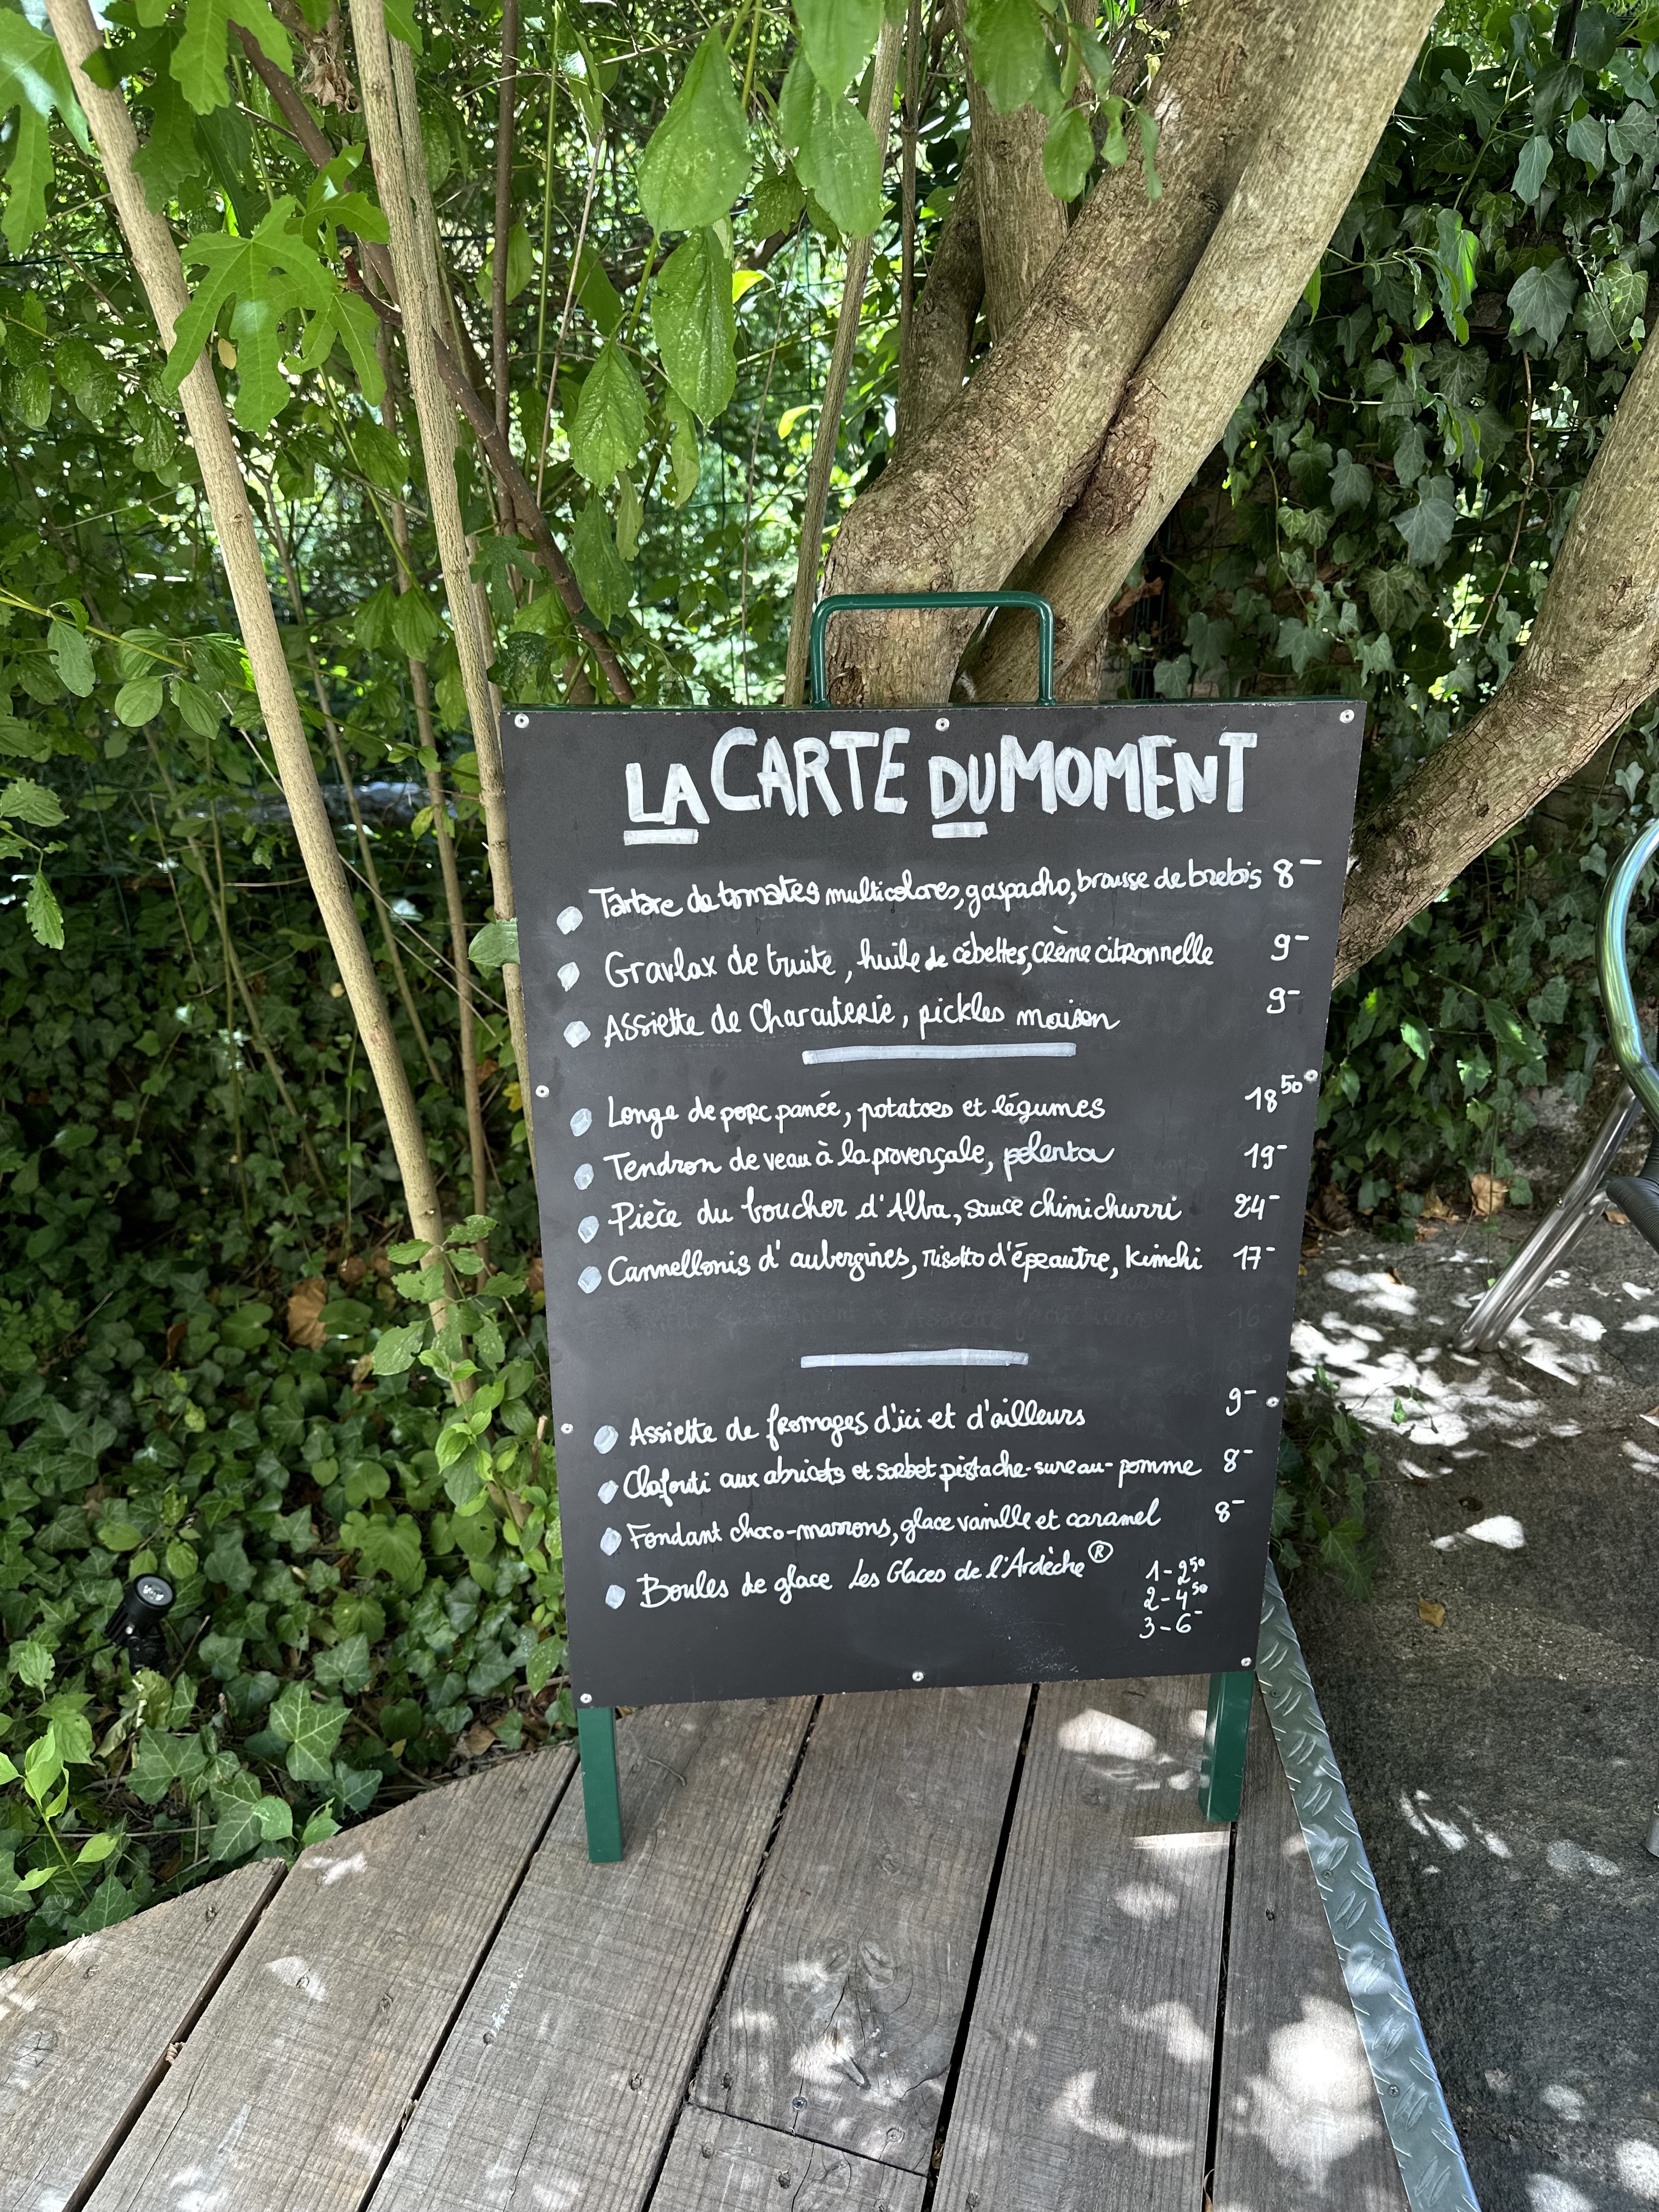 LA CARTE DU MOMENT
Tartare de tomates multicolores, gaspacho, brousse de brebis 8-
Gravlax de truite, huile de cébettes, crème citronnelle 9-
Assiette de Charcuterie, pickles maison 9-
Longe de porc panée, potatoes et légumes 18 50
Tendron de veau à la provençale, polenta 19-
Pièce du boucher d'Alba, sauce chimichurri 24-
Cannellonis d'aubergines, risotto d'épeautre, kimchi 17-
16
Assiette de fromages d'ici et d'ailleurs 9-
Clafouti aux abricots et sorbet pistache-sureau-pomme 8-
Fondant choco-marrons, glace vanille et caramel 8-
Boules de glace Les Glaces de l'Ardèche ® 1-2 50
2-4 50
3-6-